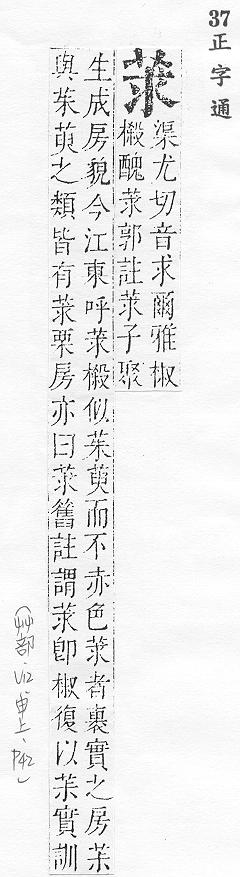 37正字通
莍
渠尤切音求爾雅椒
樧醜莍郭註莍子聚
生成房貌今江東呼莍樧似茱萸而不赤色莍者裹實之房茱
與茱萸之類皆有莍栗房亦曰莍舊註謂莍卽椒復以茱實訓
(艸部、申上、P42)